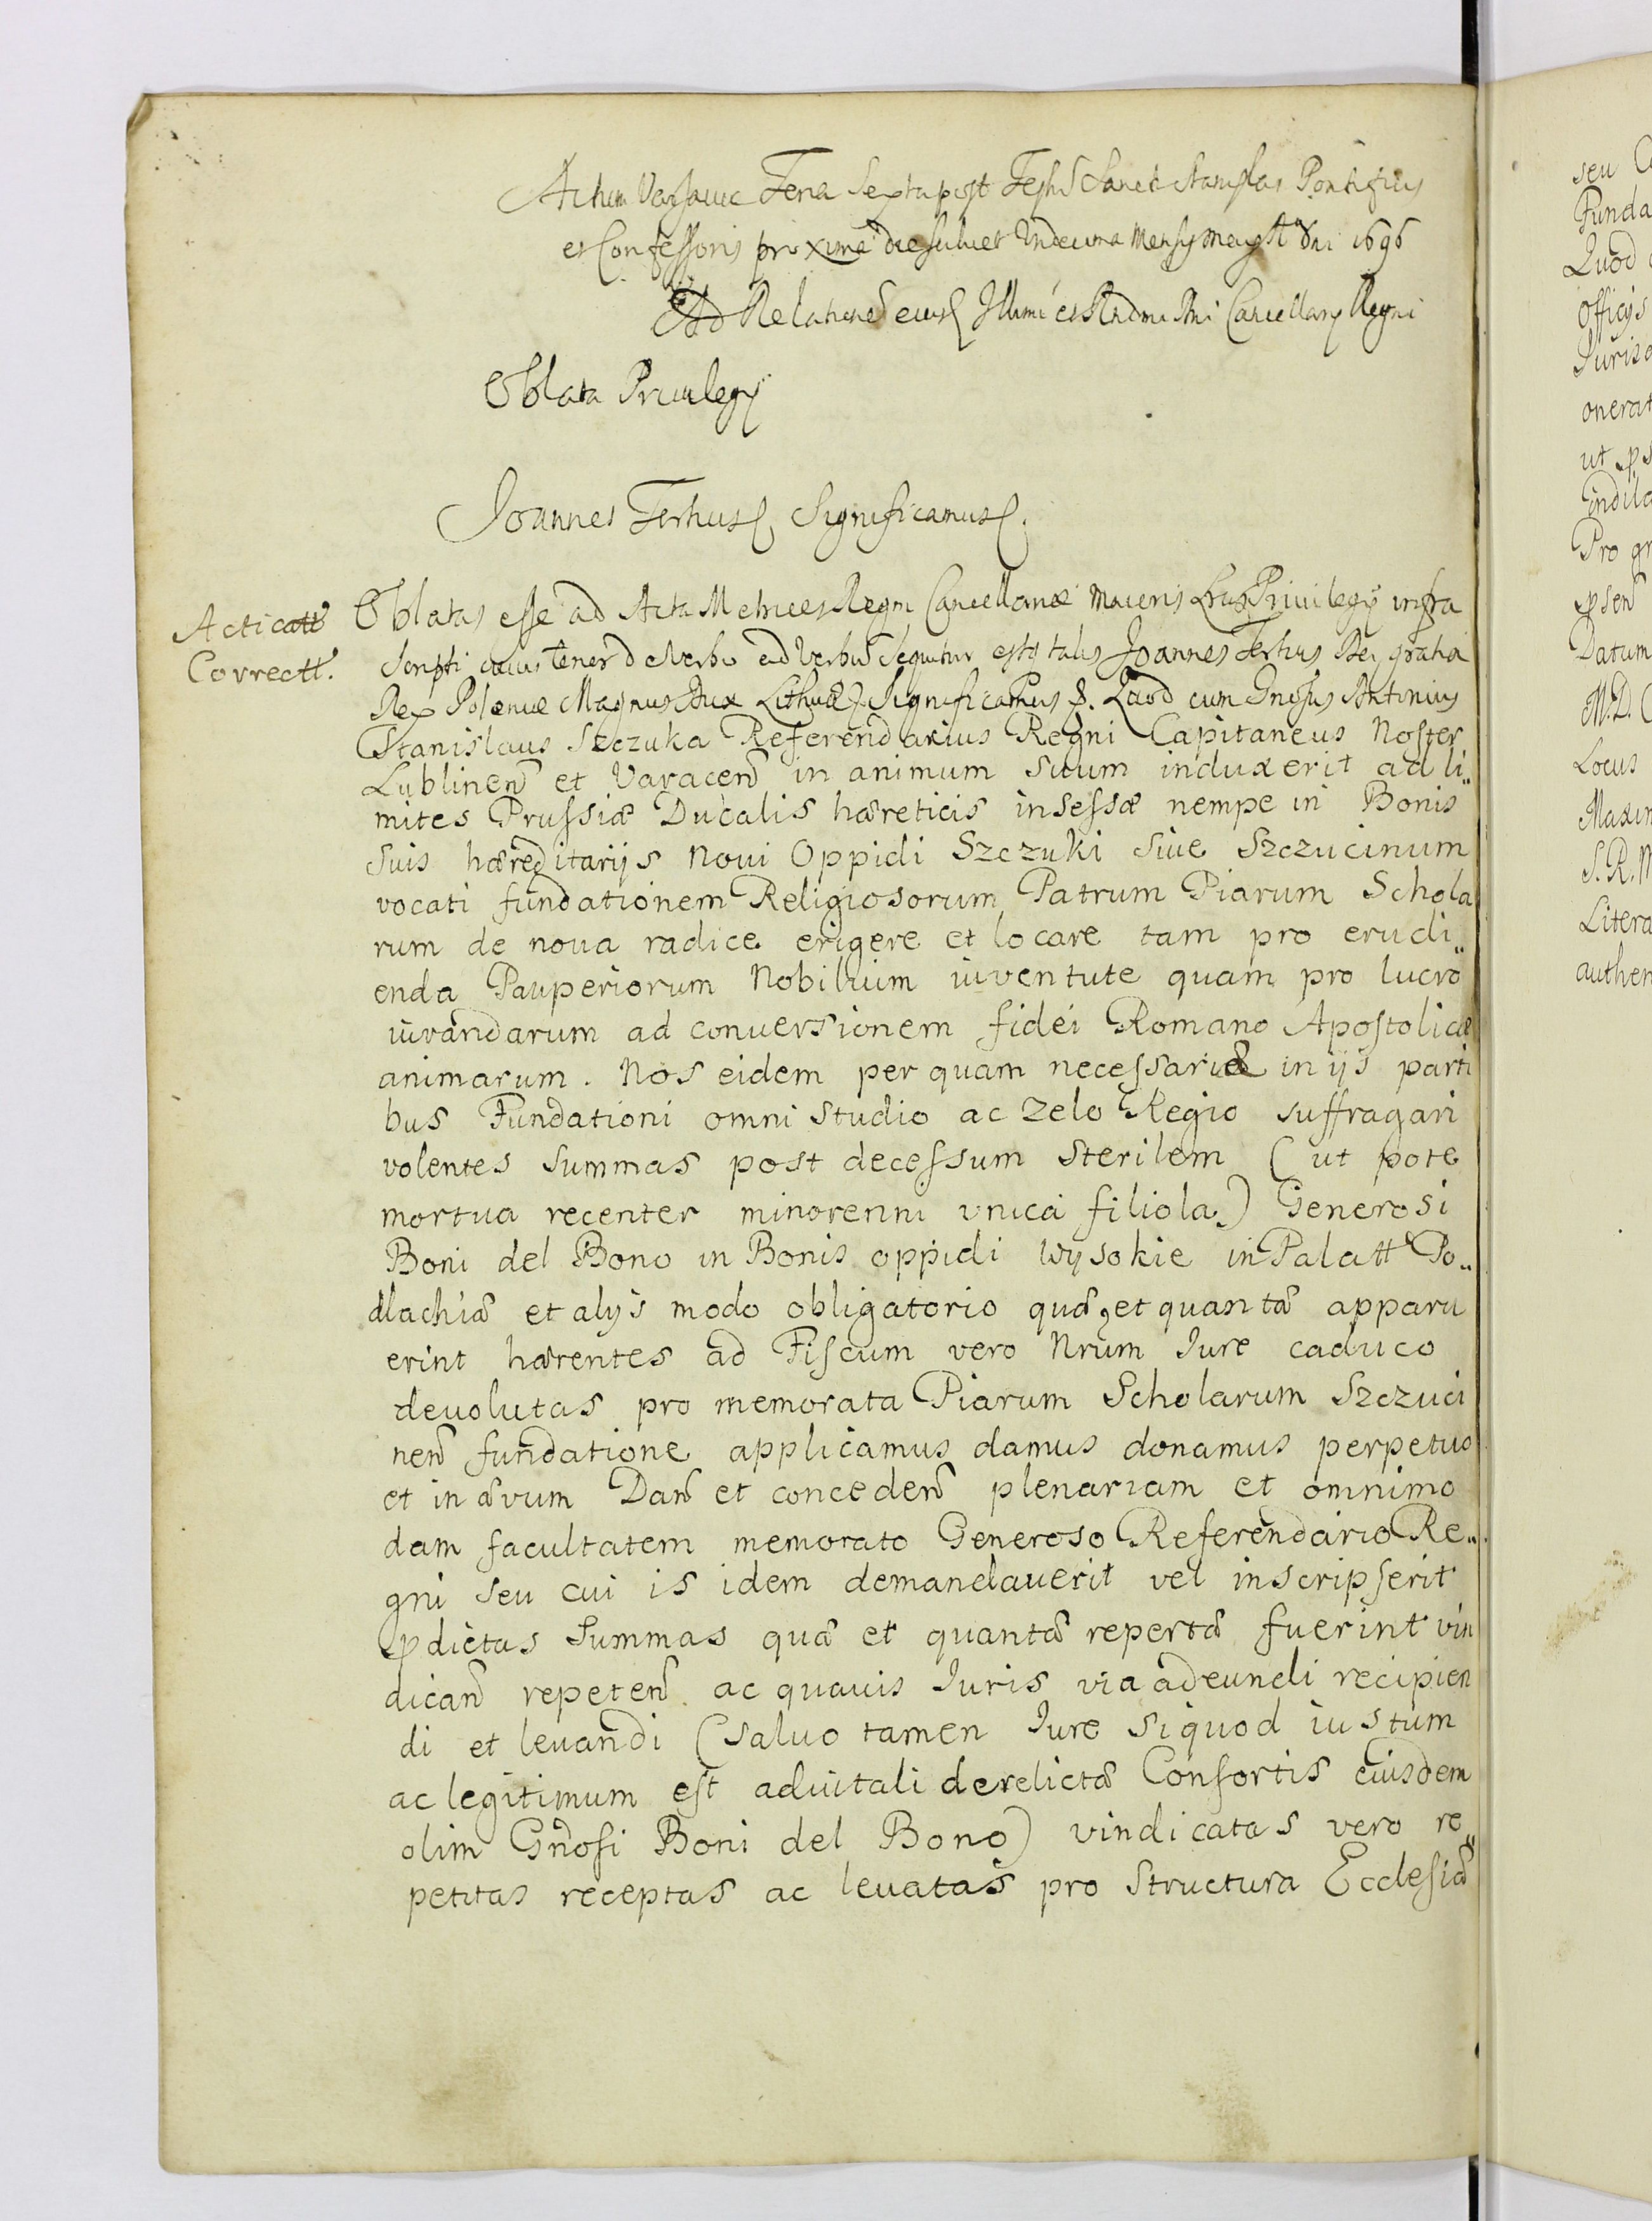 Actum Varsauiæ Feria Sexta post Festũ Sancti Stanislai Pontificis
et Confessoris proxima die scilicet Undecima Mensis Maij Aõ Dni 1696
Ad Relationẽ eiusd Illumi et Rndmi Dni Cancellarij Regni
Oblata Priuilegij
Joannes Tertius Significamus
Acticatt
Correctt.
Oblatas esse ad Acta Metrices Regni Cancellariæ Maioris Lras Priuilegij infra
scripti cuius tenor de verbo ad verbũ sequitur estq talis Joannes Tertius Dei gratia
Rex Poloniæ Magnus Dux Lithuæ Significamus &. Quod cum Gnosus Antonius
Stanislaus Szczuka Referendarius Regni Capitaneus Noster
Lublineñ et Varaceñ in animum suum induxerit ad li„
mites Prussiæ Ducalis hæreticis insessæ nempe in Bonis
suis hæreditarijs Noui Oppidi Szczuki siue Szczucinum
vocati fundationem Religiosorum Patrum Piarum Schola
rum de noua radice erigere et locare tam pro erudi„
enda Pauperiorum Nobilium iuventute quam pro lucro
iuvandarum ad conuersionem fidei Romano Apostolicæ
animarum. Nos eidem per quam necessariæ in ijs parti
bus Fundationi omni studio ac zelo Regio suffragari
volentes summas post decessum sterilem (ut pote
mortua recenter minorenni vnica filiola) Generosi
Boni del Bono in Bonis oppidi Wysokie in Palatt Po„
dlachiæ et alijs modo obligatorio quæ et quantæ apparu
erint hærentes ad Fiscum vero Nrum Jure caduco
deuolutas pro memorata Piarum Scholarum Szczuci
neñ fundatione applicamus damus donamus perpetuo
et in ævum Dañ et concedeñ plenariam et omnimo
dam facultatem memorato Generoso Referendario Re„
gni seu cui is idem demandauerit vel inscripserit
pdictas summas quæ et quantæ repertæ fuerint vin
dicañ repeteñ ac quauis Juris via adeundi recipien
di et leuandi (saluo tamen Jure siquod iustum
ac legitimum est aduitali derelictæ Consortis eiusdem
olim Gnosi Boni del Bono) vindicatas vero re„
petitas receptas ac leuatas pro structura Ecclesiæ
seu
Funda
Quod
officijs
onerat
ut
Pro gr
Datum
M.D.
Locus
Maxim
S.R.M
Litera
authen